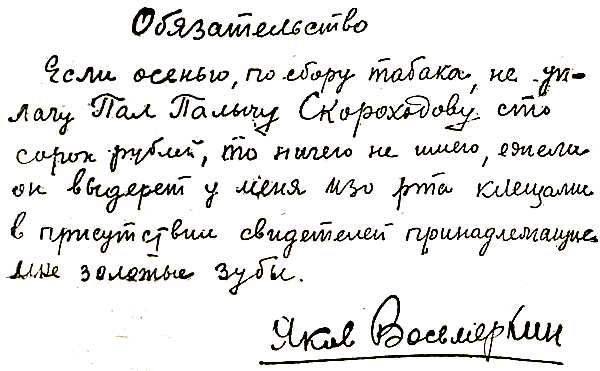 Обязательство
Если осенью, по сбору табака, не уп-
лачу Пал Палычу Скороходову сто
сорок рублей, то ничего не имею, ежели
он выдерет у меня изо рта клещами
в присутствии свидетелей принадлежащие
мне золотые зубы.
Яков Восьмеркин